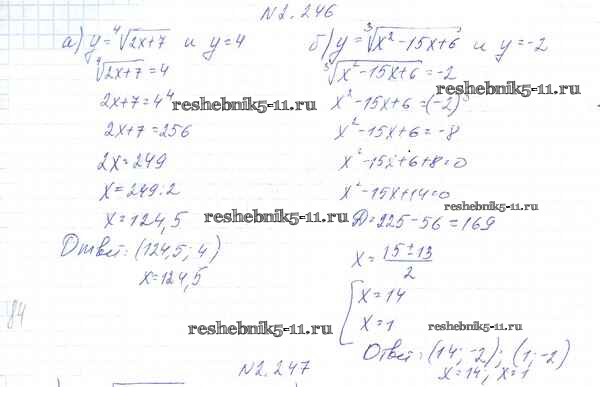 N2.246
а) y=⁴√(2x+7) и y=4
⁴√(2x+7)=4
2x+7=4⁴
2x+7=256
2x=249
x=249:2
x=124,5
Ответ: (124,5; 4)
x=124,5
б) y=³√(x²-15x+6) и y=-2
³√(x²-15x+6)=-2
x²-15x+6=(-2)³
x²-15x+6=-8
x²-15x+6+8=0
x²-15x+14=0
D=225-56=169
x=(15±13)/2
x=14
x=1
Ответ: (14; -2); (1; -2)
x=14; x=1
84
N2.247
reshebnik5-11.ru
reshebnik5-11.ru
reshebnik5-11.ru
reshebnik5-11.ru
reshebnik5-11.ru
reshebnik5-11.ru